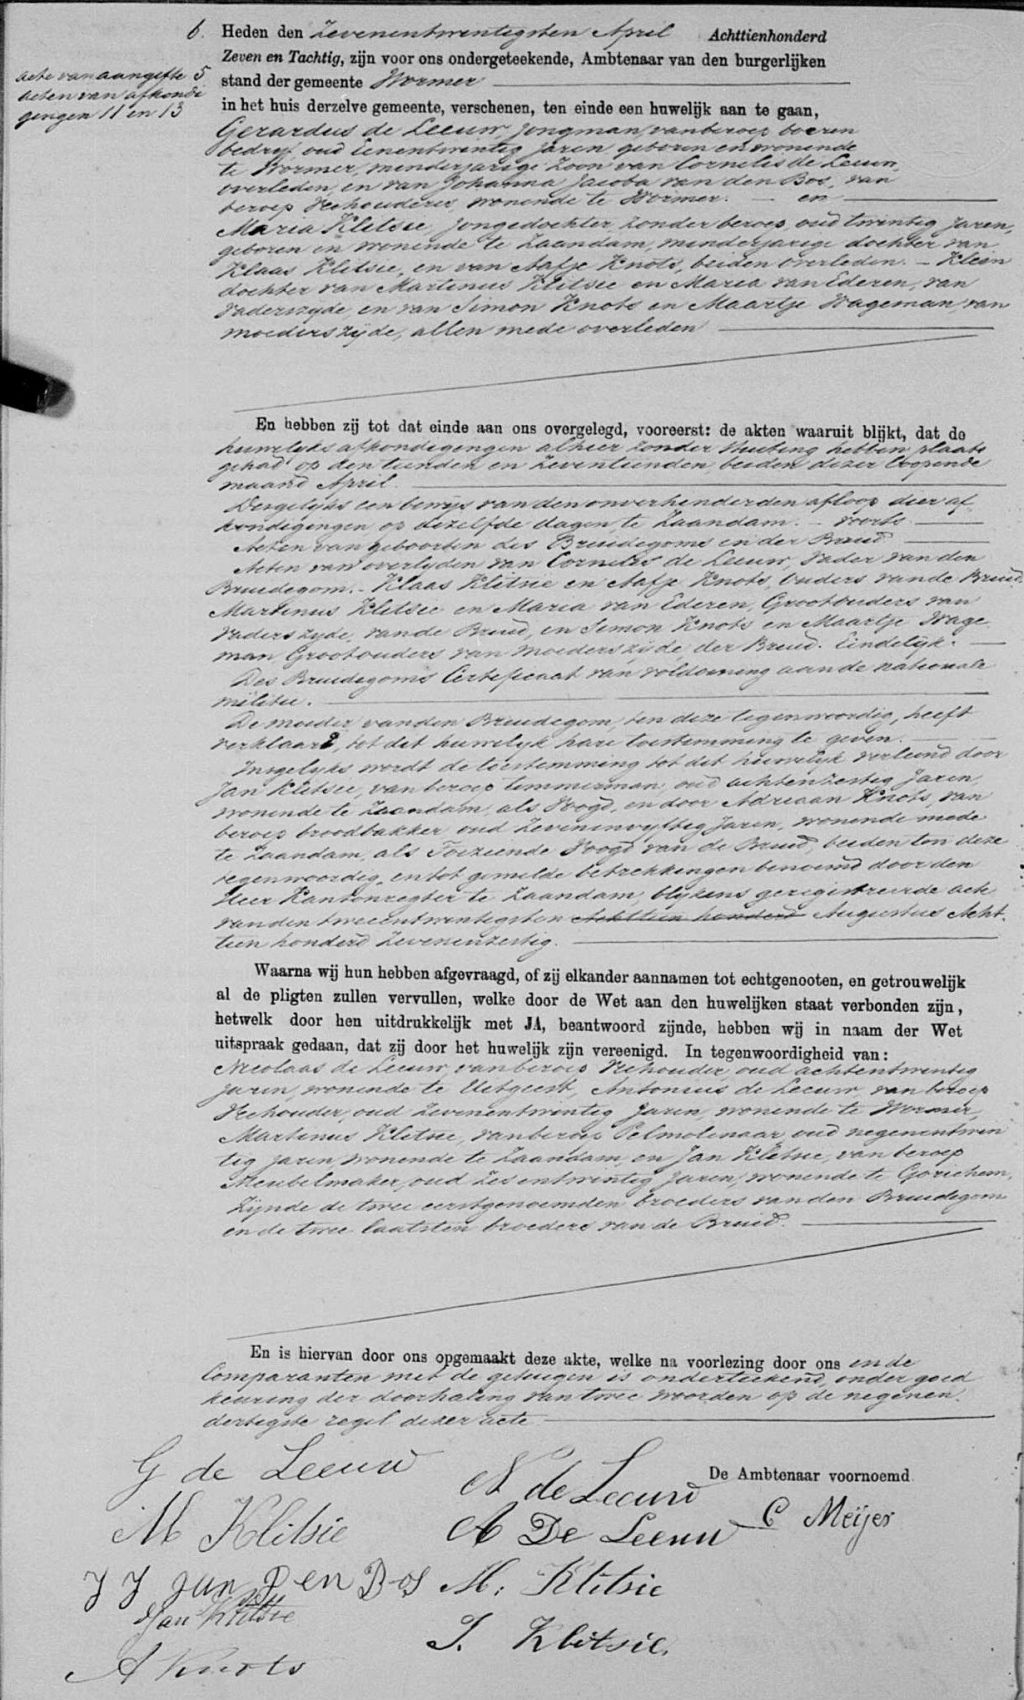 6. Heden den Zevenentwintigsten April Achttienhonderd
Zeven en Tachtig, zijn voor ons ondergeteekende, Ambtenaar van den burgerlijken
acte van aangifte 5
acten van afkondi
gingen 11 en 13
stand der gemeente Wormer
in het huis derzelve gemeente, verschenen, ten einde een huwelijk aan te gaan,
Gerardus de Leeuw, Jongman, van beroep boeren
bedryf, oud Eenentwintig jaren, geboren en wonende
te Wormer, minderjarige Zoon van Cornelis de Leeuw,
overleden, en van Johanna Jacoba van den Bos, van
beroep Veehouderes wonende te Wormer. – en
Maria Klitsie Jongedochter, zonder beroep, oud twintig Jaren,
geboren en wonende te Zaandam, minderjarige dochter van
Klaas Klitsie, en van Aafje Knots, beiden overleden. – Klein
dochter van Martinus Klitsie en Maria van Ederen, van
Vaderszyde, en van Simon Knots en Maartje Wageman, van
moederszijde, allen mede overleden
En hebben zij tot dat einde aan ons overgelegd, vooreerst: de akten waaruit blijkt, dat de
huwelyks afkondigingen alhier zonder stuiting hebben plaats
gehad op den tienden en Zeventienden beiden dezer loopende
maand April.
Dergelyks een bewys van den onverhinderden afloop dier af
kondigingen op dezelfde dagen te Zaandam. – voorts
Acten van geboorten des Bruidegoms en der Bruid
Acten van overlyden van Cornelis de Leeuw, Vader van den
Bruidegom. – Klaas Klitsie en Aafje Knots, Ouders van de Bruid,
Martinus Klitsie en Maria van Ederen, Grootouders van
Vaders zyde, van de Bruid, en Simon Knots en Maartje Wage
man Grootouders van moeders zyde der Bruid. Eindelyk. –
Des Bruidegoms Certificaat van voldoening aan de nationale
militie.
De moeder van den Bruidegom, ten deze tegenwoordig, heeft
verklaard, tot dit huwelyk hare toestemming te geven.
Insgelyks wordt de toestemming tot dit huwelyk verleend door
Jan Klitsie, van beroep timmerman, oud achtenzestig Jaren,
wonende te Zaandam, als Voogd, en door Adriaan Knots, van
beroep broodbakker oud Zevenenvyftig Jaren, wonende mede
te Zaandam, als Toeziende Voogd van de Bruid, beiden ten deze
tegenwoordig, en tot gemelde betrekkingen benoemd door den
Heer Kantonregter te Zaandam, blykens geregistreerde acte
van den tweeentwintigsten Achttien honderd Augustus Acht-
tien honderd Zevenenzestig.
Waarna wij hun hebben afgevraagd, of zij elkander aannamen tot echtgenooten, en getrouwelijk
al de pligten zullen vervullen, welke door de Wet aan den huwelijken staat verbonden zijn,
hetwelk door hen uitdrukkelijk met JA, beantwoord zijnde, hebben wij in naam der Wet
uitspraak gedaan, dat zij door het huwelijk zijn vereenigd. In tegenwoordigheid van:
Nicolaas de Leeuw, van beroep Veehouder, oud achtentwintig
Jaren, wonende te Uitgeest, Antonius de Leeuw van beroep
Veehouder, oud Zevenentwintig Jaren, wonende te Wormer,
Martinus Klitsie, van beroep Pelmolenaar, oud negenentwin
tig jaren wonende te Zaandam, en Jan Klitsie, van beroep
Meubelmaker, oud Zesentwintig Jaren, wonende te Gorichem,
Zijnde de twee eerstgenoemden broeders van den Bruidegom
en de twee laatsten broeders van de Bruid.
En is hiervan door ons opgemaakt deze akte, welke na voorlezing door ons en de
Comparanten met de getuigen is onderteekend, onder goed
keuring der doorhaling van twee woorden op de negenen
dertigste regel dezer acte
G de Leeuw
N de Leeuw
De Ambtenaar voornoemd
C Meijer
M Klitsie
A De Leeuw
J J van Den Bos
M. Klitsie
Jan Klitsie
J. Klitsie.
A Knots